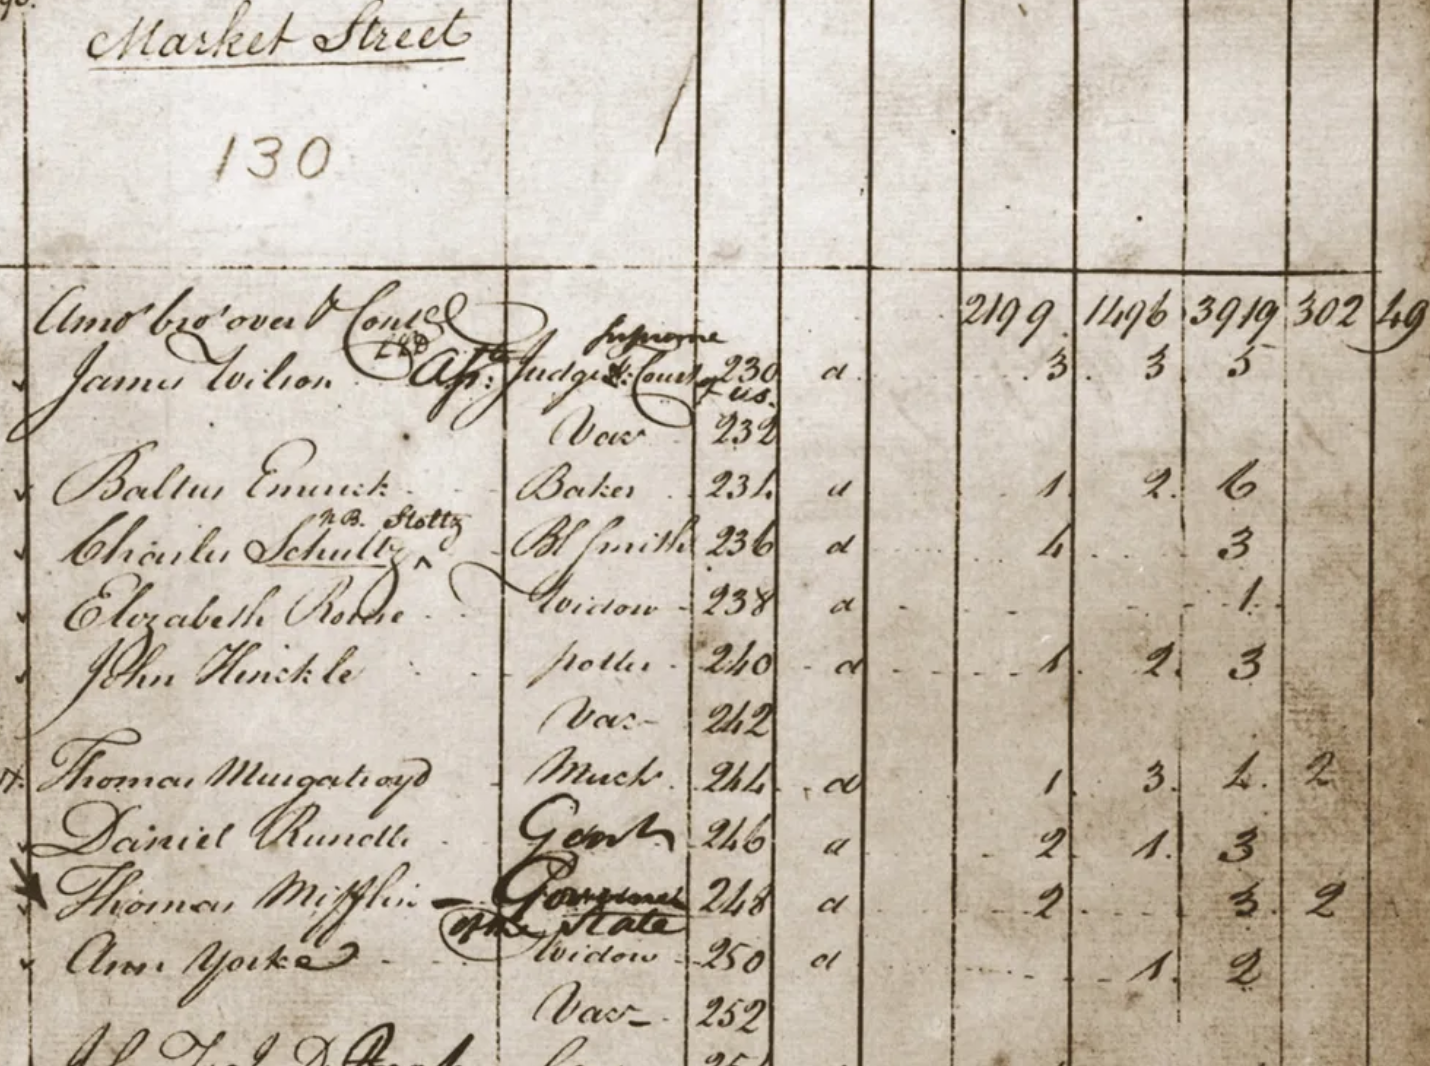 Market Street
130
Amo' bro' over 2199 1496 3919 302 49
Supreme
James Wilson LLD Judge Court 230 d 3 3 5
of U.S.
Vac 232
Baltus Emrick Baker 234 d 1 2 6
N.B. Stoltz
Charles Schultz ^ Bl Smith 236 d 4 3
Elizabeth Widow 238 d 1
John Hinckle potter 240 d 1 2 3
Vac 242
Thomas Murgatroyd Mercht 244 d 1 3 4 2
Daniel Rundle Gent 246 d 2 1 3
Thomas Mifflin Governor 248 d 2 3 2
of the State
Ann Yorke Widow 250 d 1 2
Vac 252